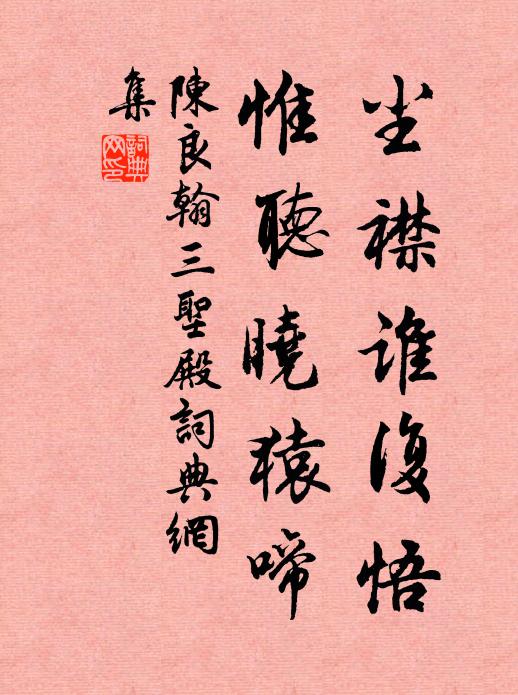 尘襟谁復悟
惟聽曉猿啼
陳良翰三聖殿詞典網
集
詞典網印